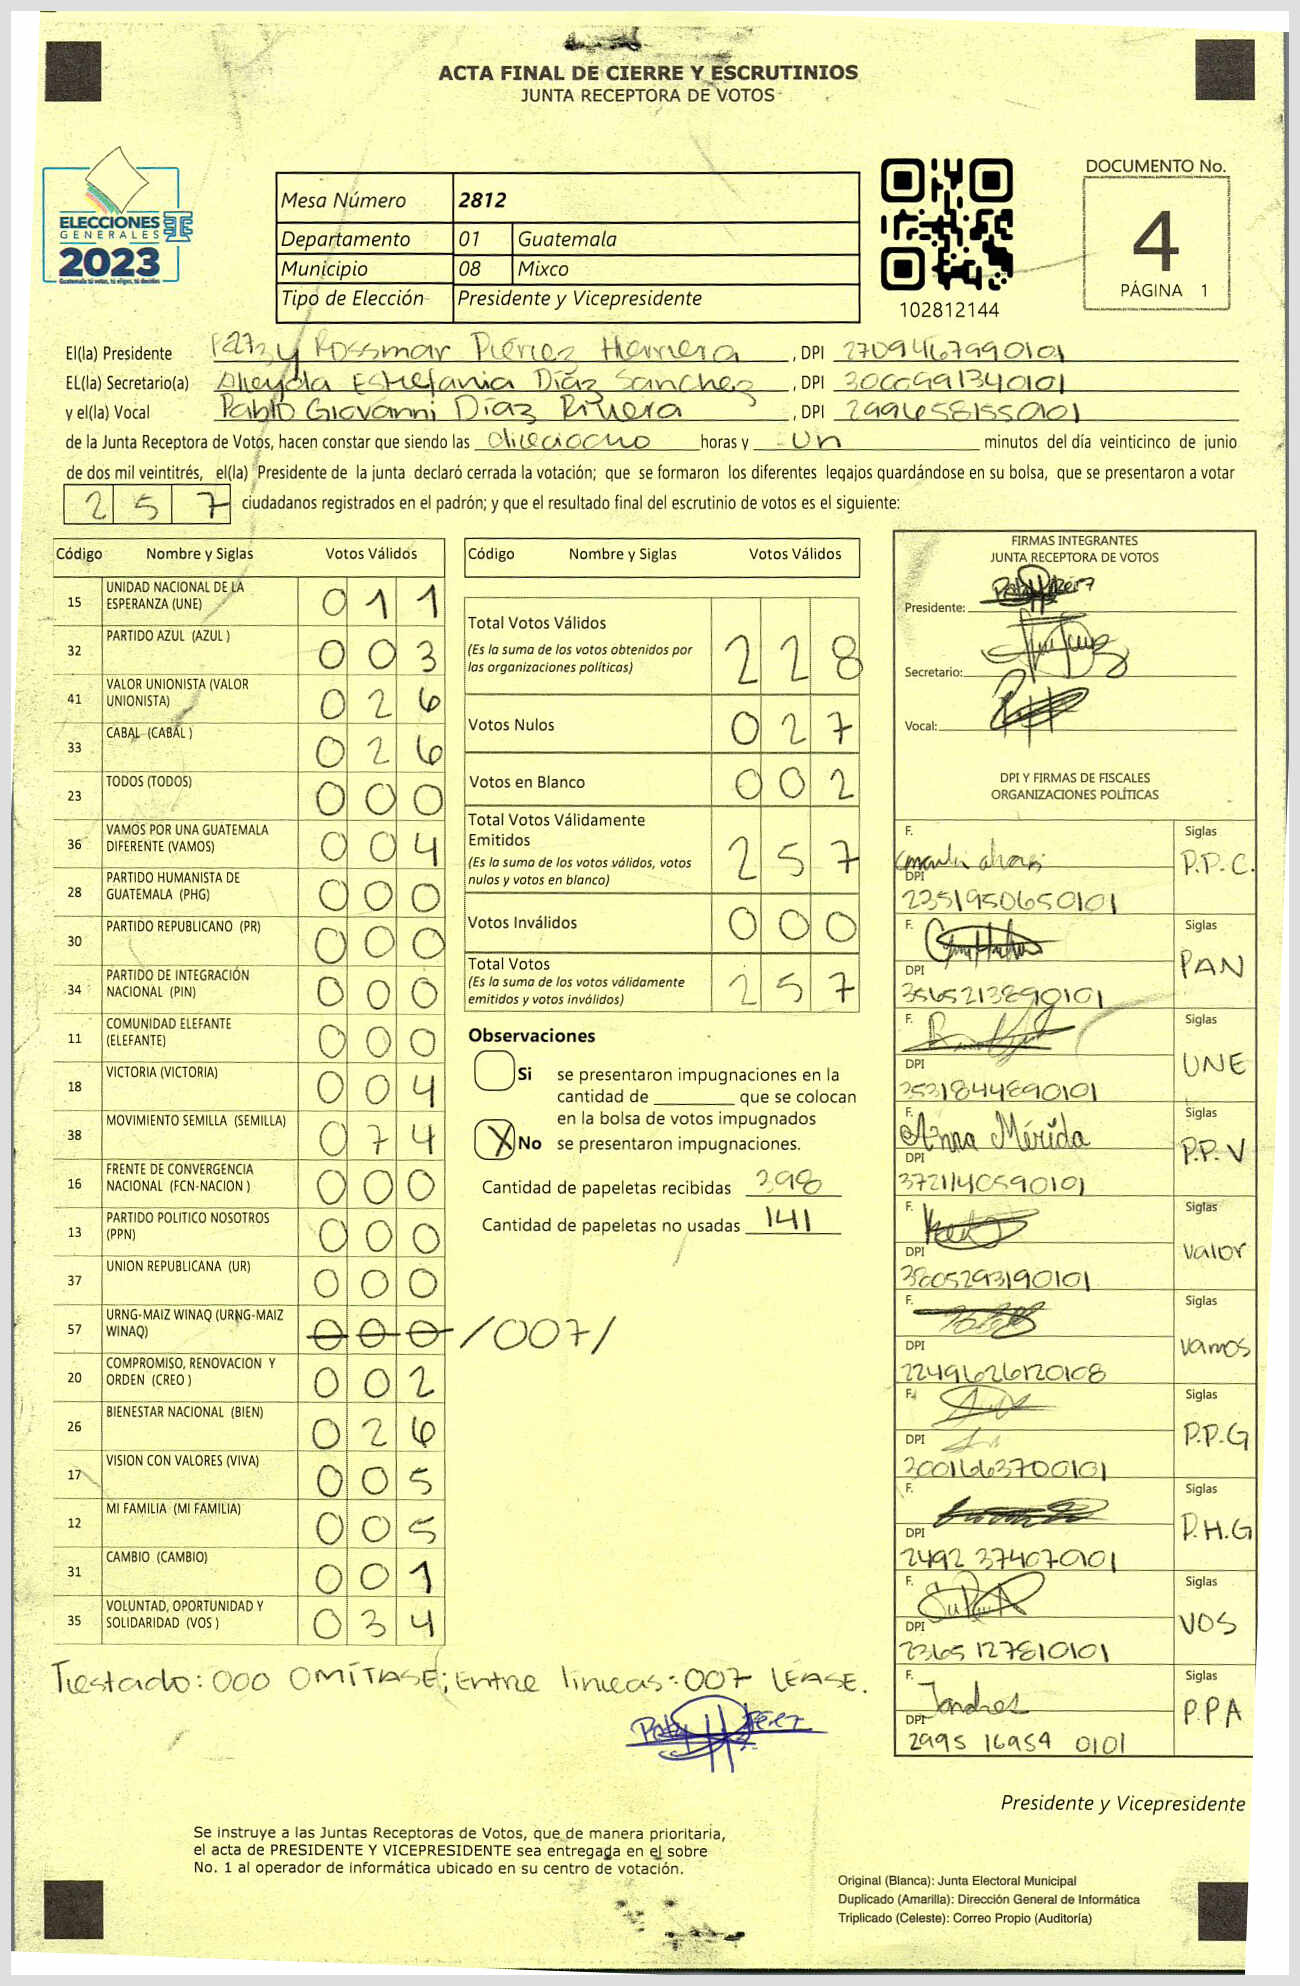 ACTA FINAL DE CIERRE Y ESCRUTINIOS
JUNTA RECEPTORA DE VOTOS
ELECCIONES
GENERALES
2023
Guatemala tú votas, tú eliges, tú decides
Mesa Número 2812
Departamento 01 Guatemala
Municipio 08 Mixco
Tipo de Elección Presidente y Vicepresidente
102812144
DOCUMENTO No.
4
PÁGINA 1
El(la) Presidente Rossmar Herrera , DPI 2709467990101
EL(la) Secretario(a) Estefania Díaz Sanchez , DPI 3000991340101
y el(la) Vocal Pablo Giovanni Díaz Rivera , DPI 29946581550101
de la Junta Receptora de Votos, hacen constar que siendo las dieciocho horas y un minutos del día veinticinco de junio
de dos mil veintitrés, el(la) Presidente de la junta declaró cerrada la votación; que se formaron los diferentes legajos guardándose en su bolsa, que se presentaron a votar
2 5 7 ciudadanos registrados en el padrón; y que el resultado final del escrutinio de votos es el siguiente:
Código Nombre y Siglas Votos Válidos
15 UNIDAD NACIONAL DE LA ESPERANZA (UNE) 0 1 1
32 PARTIDO AZUL (AZUL ) 0 0 3
41 VALOR UNIONISTA (VALOR UNIONISTA) 0 2 6
33 CABAL (CABAL ) 0 2 6
23 TODOS (TODOS) 0 0 0
36 VAMOS POR UNA GUATEMALA DIFERENTE (VAMOS) 0 0 4
28 PARTIDO HUMANISTA DE GUATEMALA (PHG) 0 0 0
30 PARTIDO REPUBLICANO (PR) 0 0 0
34 PARTIDO DE INTEGRACIÓN NACIONAL (PIN) 0 0 0
11 COMUNIDAD ELEFANTE (ELEFANTE) 0 0 0
18 VICTORIA (VICTORIA) 0 0 4
38 MOVIMIENTO SEMILLA (SEMILLA) 0 7 4
16 FRENTE DE CONVERGENCIA NACIONAL (FCN-NACION ) 0 0 0
13 PARTIDO POLITICO NOSOTROS (PPN) 0 0 0
37 UNION REPUBLICANA (UR) 0 0 0
57 URNG-MAIZ WINAQ (URNG-MAIZ WINAQ) 0 0 0 /007/
20 COMPROMISO, RENOVACION Y ORDEN (CREO ) 0 0 2
26 BIENESTAR NACIONAL (BIEN) 0 2 6
17 VISION CON VALORES (VIVA) 0 0 5
12 MI FAMILIA (MI FAMILIA) 0 0 5
31 CAMBIO (CAMBIO) 0 0 1
35 VOLUNTAD, OPORTUNIDAD Y SOLIDARIDAD (VOS ) 0 3 4
Testado: 000 OMÍTASE; Entre lineas: 007 LÉASE.
Código Nombre y Siglas Votos Válidos
Total Votos Válidos 2 2 8
(Es la suma de los votos obtenidos por
las organizaciones políticas)
Votos Nulos 0 2 7
Votos en Blanco 0 0 2
Total Votos Válidamente
Emitidos 2 5 7
(Es la suma de los votos válidos, votos
nulos y votos en blanco)
Votos Inválidos 0 0 0
Total Votos 2 5 7
(Es la suma de los votos válidamente
emitidos y votos inválidos)
Observaciones
Si se presentaron impugnaciones en la
cantidad de ________ que se colocan
en la bolsa de votos impugnados
X No se presentaron impugnaciones.
Cantidad de papeletas recibidas 398
Cantidad de papeletas no usadas 141
FIRMAS INTEGRANTES
JUNTA RECEPTORA DE VOTOS
Presidente:
Secretario:
Vocal:
DPI Y FIRMAS DE FISCALES
ORGANIZACIONES POLÍTICAS
F. Siglas P.P.C.
DPI 2351950650101
F. Siglas PAN
DPI 3565213890101
F. Siglas UNE
DPI 3531844890101
F. Anna Mérida Siglas P.P.V
DPI 3721140590101
F. Siglas Valor
DPI 3805293190101
F. Siglas Vamos
DPI 2249626120108
F. Siglas P.P.G
DPI 3001663700101
F. Siglas P.H.G
DPI 2492 374070101
F. Siglas VOS
DPI 2365 127810101
F. Siglas P.P.A
DPI 2995 16954 0101
Presidente y Vicepresidente
Se instruye a las Juntas Receptoras de Votos, que de manera prioritaria,
el acta de PRESIDENTE Y VICEPRESIDENTE sea entregada en el sobre
No. 1 al operador de informática ubicado en su centro de votación.
Original (Blanca): Junta Electoral Municipal
Duplicado (Amarilla): Dirección General de Informática
Triplicado (Celeste): Correo Propio (Auditoría)